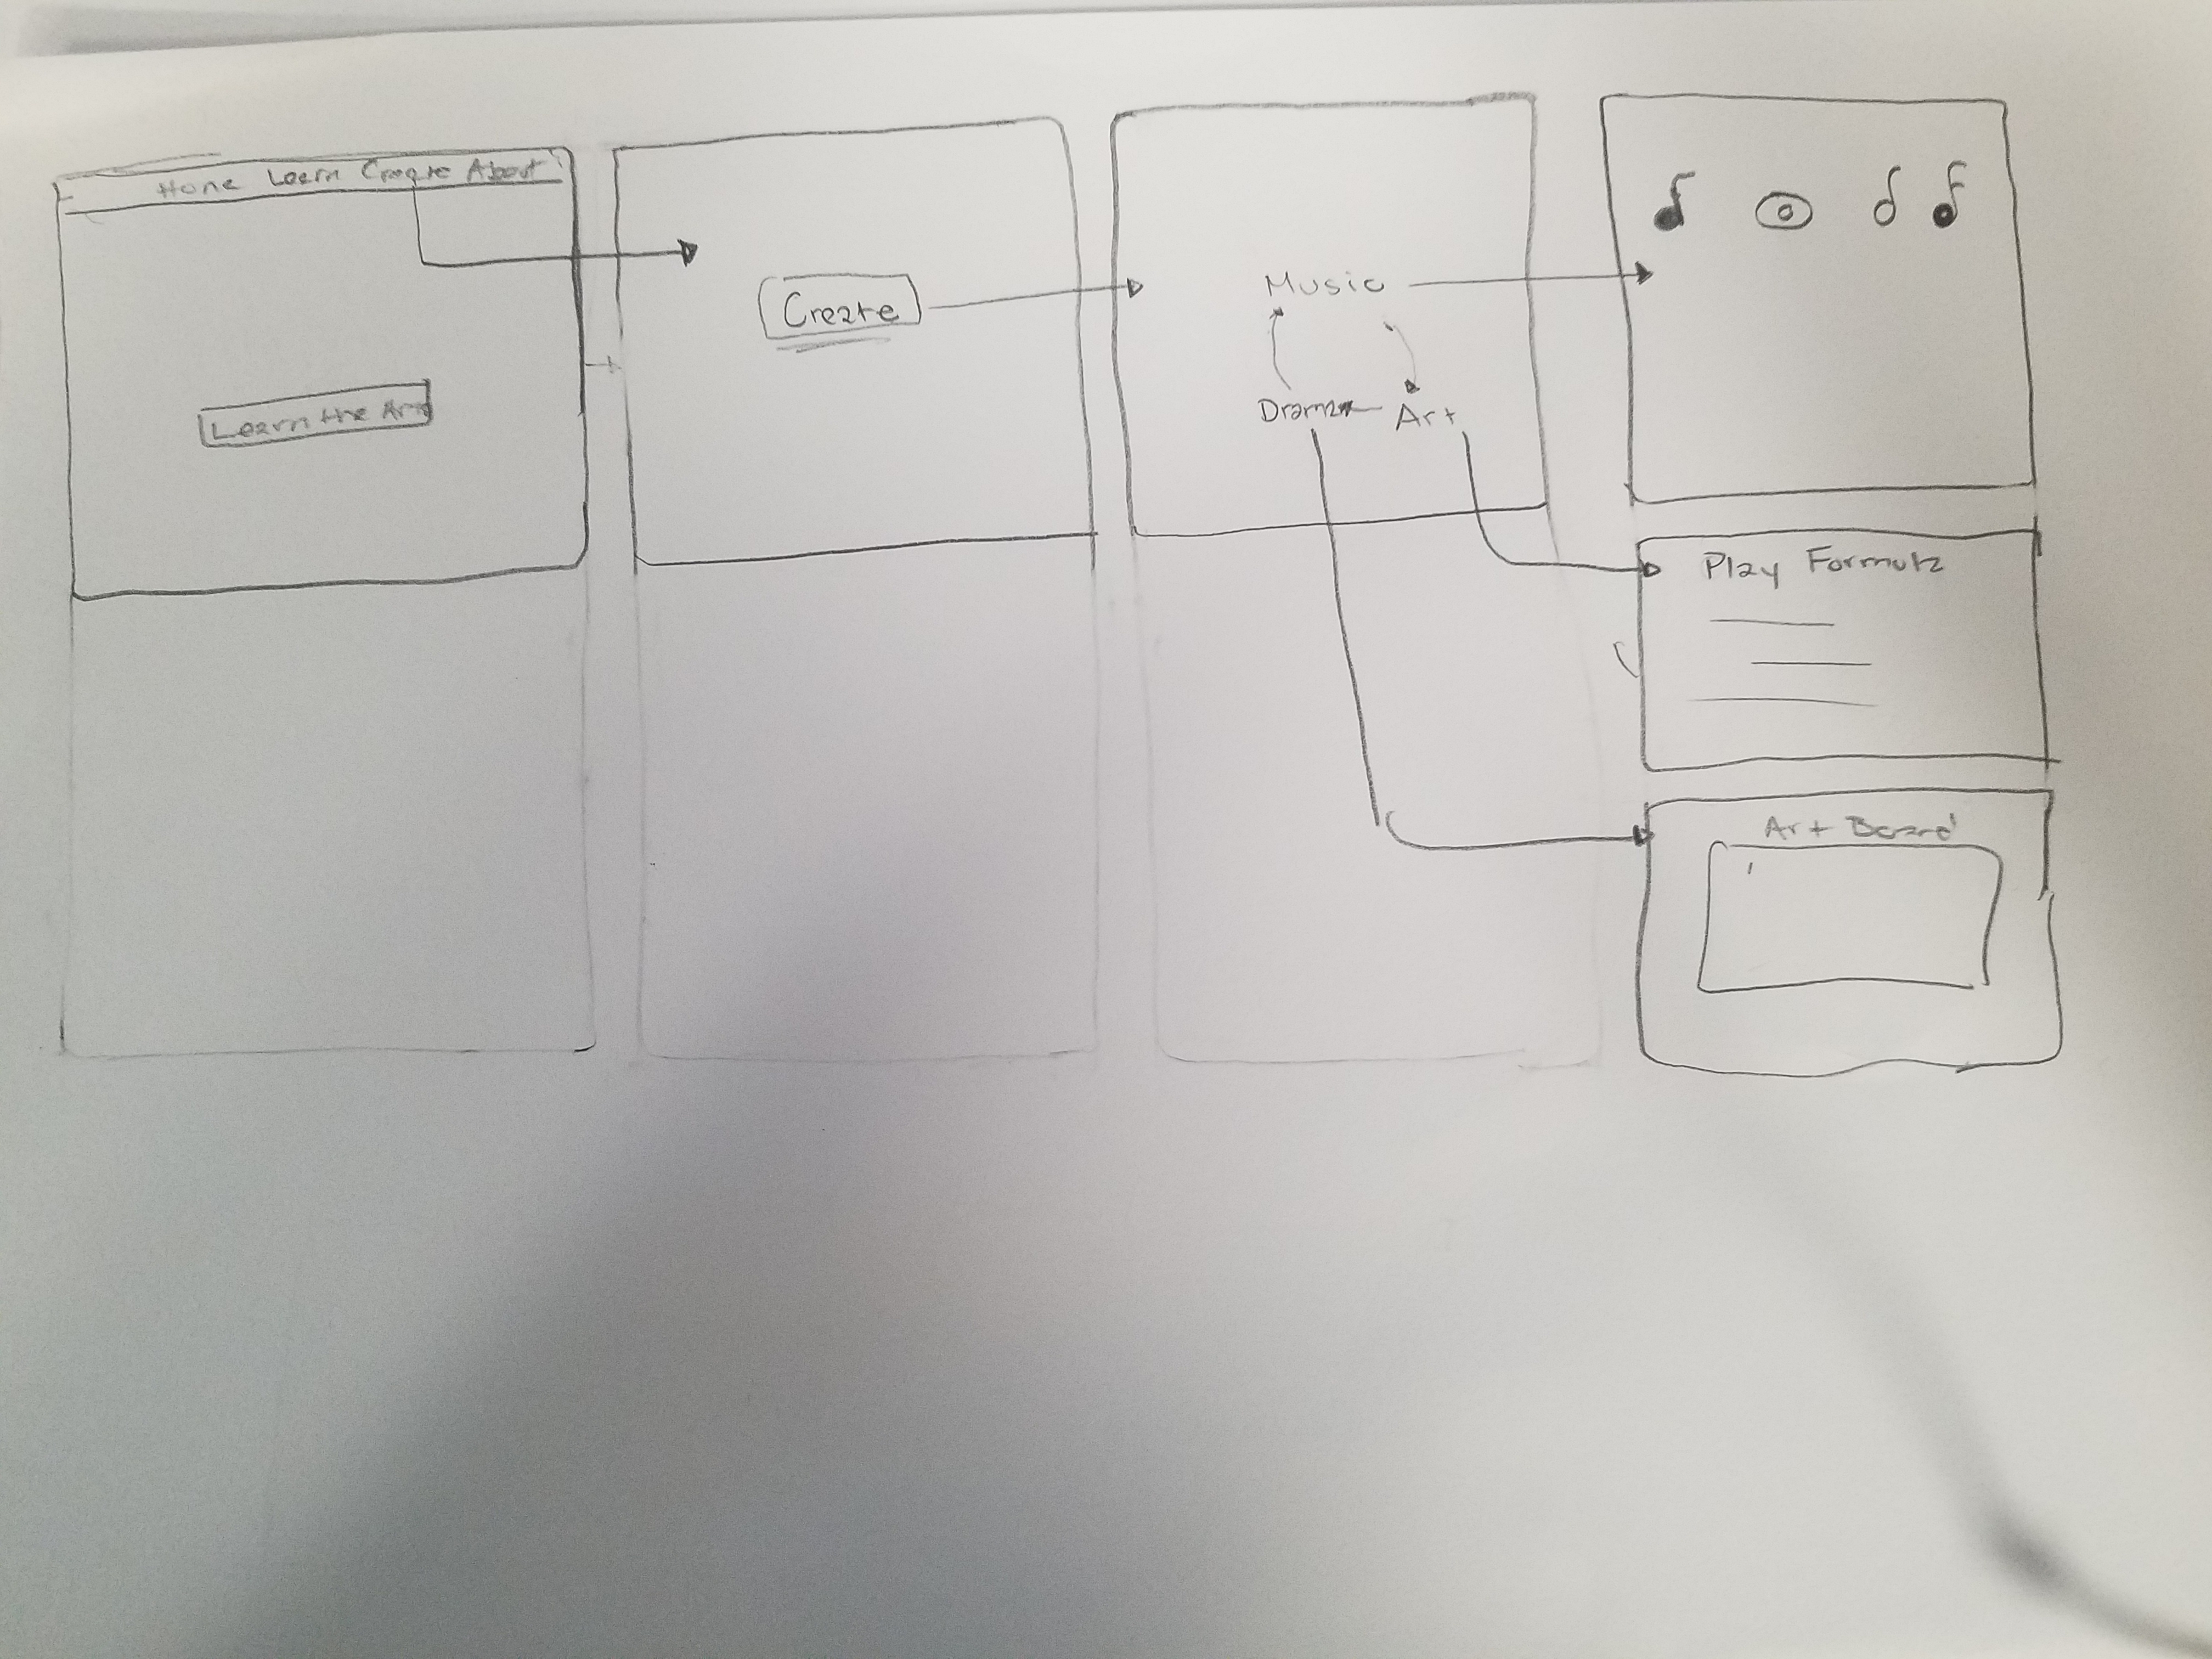 Home Learn Create About
Learn the Arts
Create
Music
Drama Art
Play Formula
Art Board